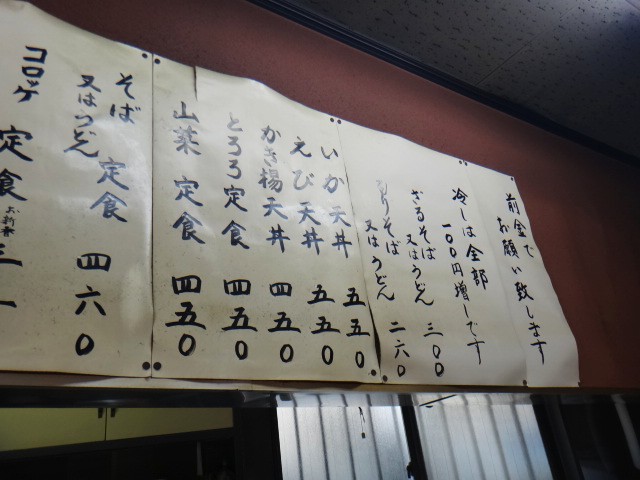 前金で
お願い致します
冷しは全部
一00円増しです
ざるそば
又はうどん 三00
もりそば
又はうどん 二六0
いか天丼 五五0
えび天丼 五五0
かき揚天丼 四五0
とろろ定食 四五0
山菜定食 四五0
そば
又はうどん 定食 四六0
コロッケ 定食
お新香
三一